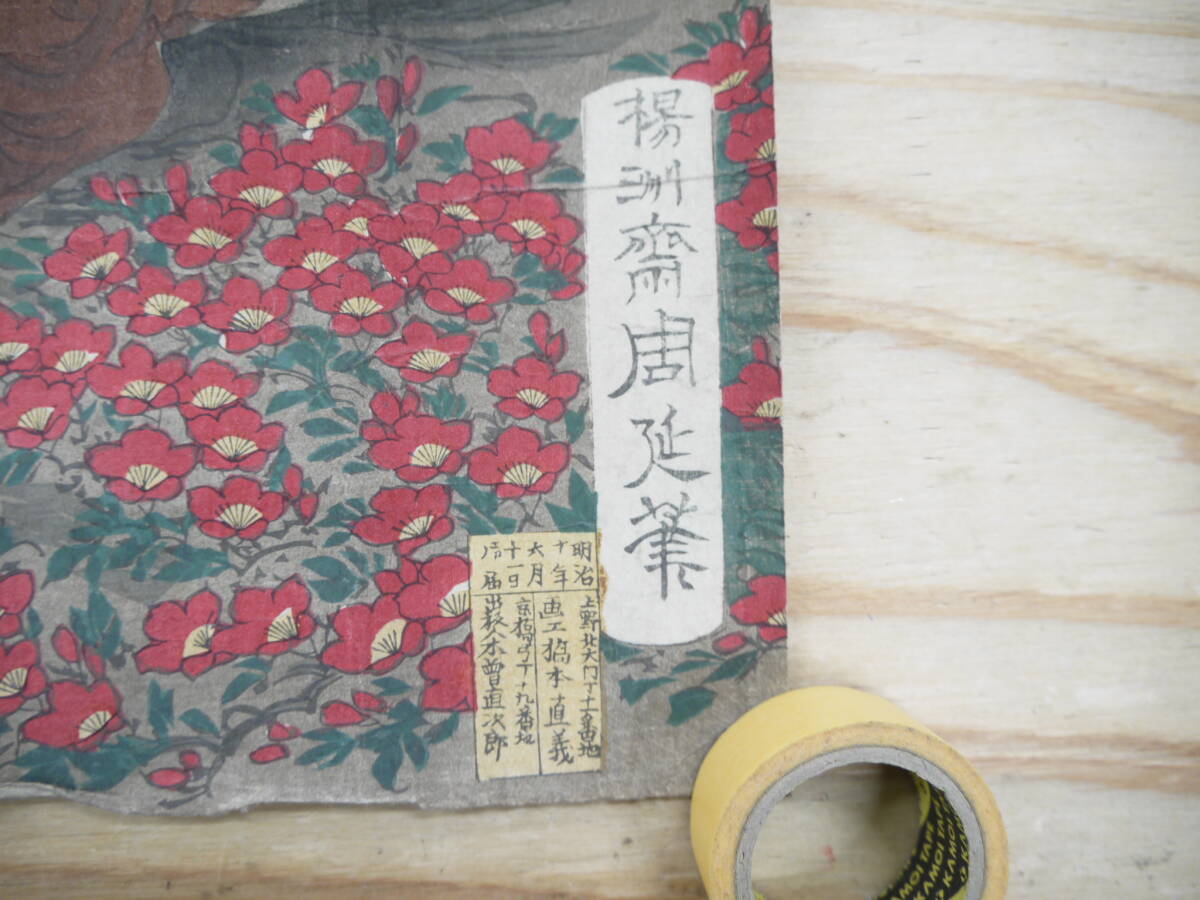 楊洲齋周延筆
明治
十年
六月
十一日
御届
上野北大門丁十一番地
画工橋本直義
京橋弓丁十九番地
出板人木曽直次郎
KAMOI TAPE